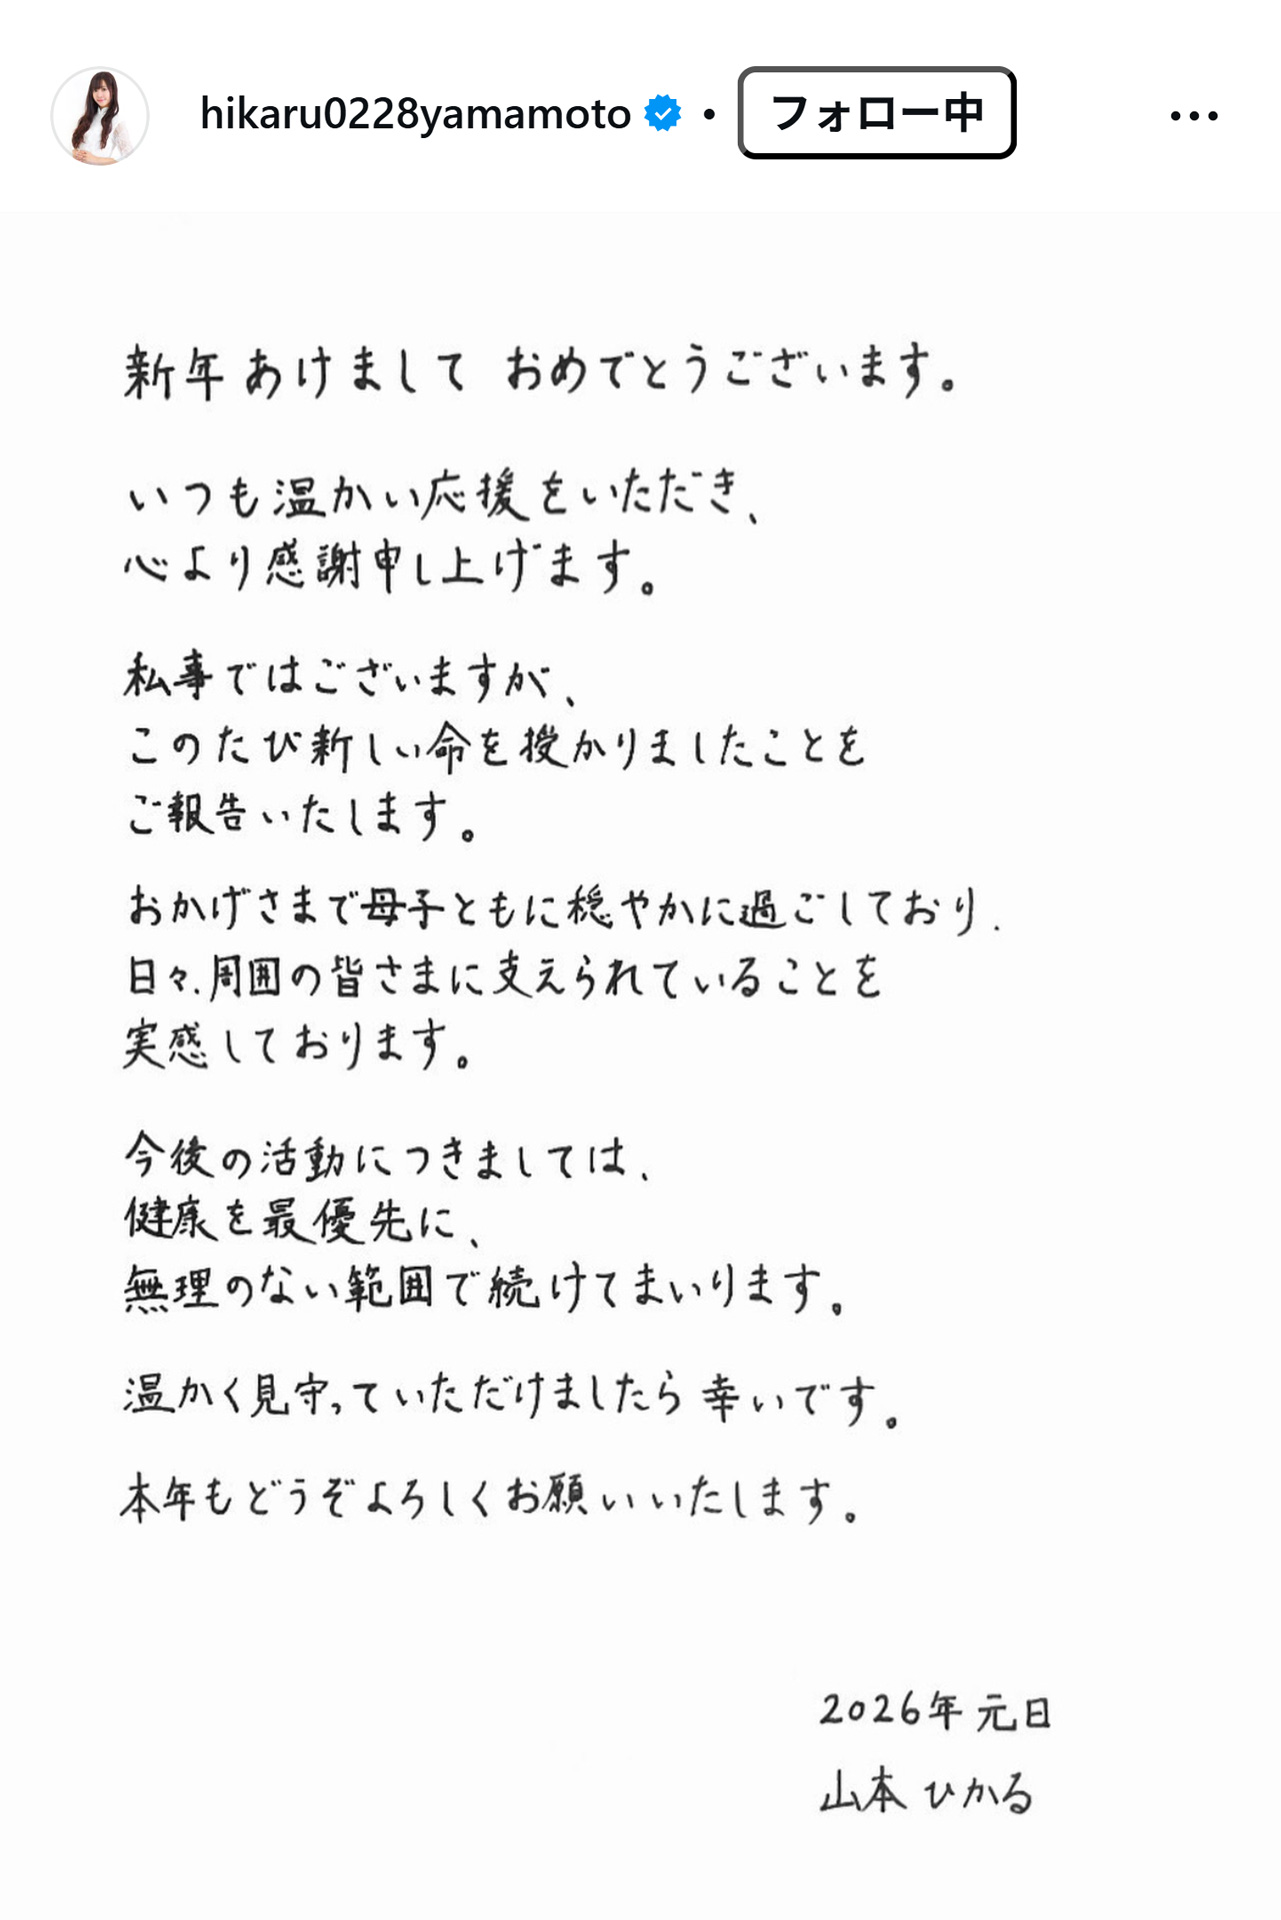 hikaru0228yamamoto • フォロー中
新年 あけまして おめでとうございます。
いつも温かい応援をいただき、
心より感謝申し上げます。
私事ではございますが、
このたび新しい命を授かりましたことを
ご報告いたします。
おかげさまで母子ともに穏やかに過ごしており、
日々、周囲の皆さまに支えられていることを
実感しております。
今後の活動につきましては、
健康を最優先に、
無理のない範囲で続けてまいります。
温かく見守っていただけましたら 幸いです。
本年もどうぞよろしくお願いいたします。
2026年 元日
山本 ひかる